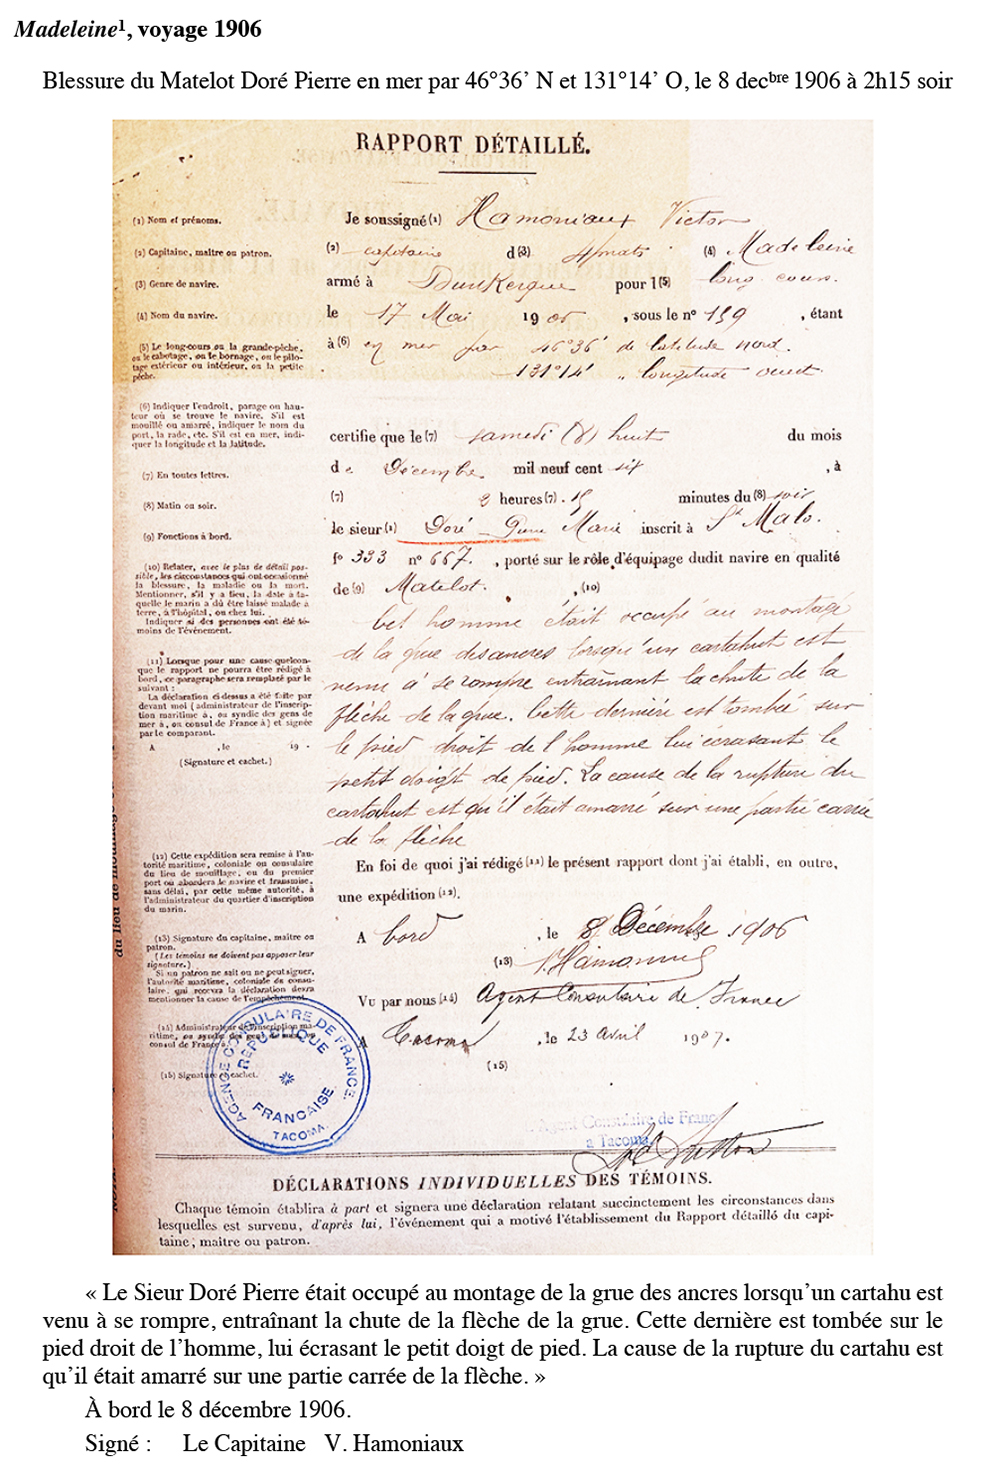 Madeleine¹, voyage 1906
Blessure du Matelot Doré Pierre en mer par 46°36’ N et 131°14’ O, le 8 decbre 1906 à 2h15 soir
RAPPORT DÉTAILLÉ.
(1) Nom et prénoms.
Je soussigné (1) Hamoniaux Victor
(2) Capitaine, maître ou patron.
(2) capitaine d (3) 4 mats (4) Madeleine
(3) Genre de navire.
armé à Dunkerque pour l (5) long cours.
(4) Nom du navire.
le 17 Mai 1906, sous le n° 159, étant
(5) Le long-cours ou la grande-pêche,
ou le cabotage, ou le bornage, ou le pilo-
tage extérieur ou intérieur, ou la petite
pêche.
à (6) en mer par 46°36' de latitude nord.
131°14' " longitude ouest.
(6) Indiquer l'endroit, parage ou hau-
teur où se trouve le navire. S'il est
mouillé ou amarré, indiquer le nom du
port, la rade, etc. S'il est en mer, indi-
quer la longitude et la latitude.
certifie que le (7) samedi (8) huit du mois
(7) En toutes lettres.
de Décembre mil neuf cent six, à
(8) Matin ou soir.
(7) 2 heures (7) . 15 minutes du (8) soir
(9) Fonctions à bord.
le sieur (1) Doré Pierre Marie inscrit à St Malo.
f° 333 n° 667. , porté sur le rôle d'équipage dudit navire en qualité
de (9) Matelot. , (10)
(10) Relater, avec le plus de détail pos-
sible, les circonstances qui ont occasionné
la blessure, la maladie ou la mort.
Mentionner, s'il y a lieu, la date à la-
quelle le marin a dû être laissé malade à
terre, à l'hôpital, ou chez lui.
Indiquer si des personnes ont été té-
moins de l'événement.
(11) Lorsque pour une cause quelcon-
que le rapport ne pourra être rédigé à
bord, ce paragraphe sera remplacé par le
suivant :
La déclaration ci-dessus a été faite par
devant moi (administrateur de l'inscrip-
tion maritime à, ou syndic des gens de
mer à, ou consul de France à) et signée
par le comparant.
A , le 19 .
(Signature et cachet.)
Cet homme était occupé au montage
de la grue des ancres lorsqu'un cartahut est
venu à se rompre entraînant la chute de la
flèche de la grue. Cette dernière est tombée sur
le pied droit de l'homme lui écrasant le
petit doigt de pied. La cause de la rupture du
cartahut est qu'il était amarré sur une partie carrée
de la flèche
(12) Cette expédition sera remise à l'au-
torité maritime, coloniale ou consulaire
du lieu de mouillage, ou du premier
port où abordera le navire et transmise,
sans délai, par cette même autorité, à
l'administrateur du quartier d'inscription
du marin.
En foi de quoi j'ai rédigé (11) le présent rapport dont j'ai établi, en outre,
une expédition (12).
(13) Signature du capitaine, maître ou
patron.
(Les témoins ne doivent pas apposer leur
signature.)
Si un patron ne sait ou ne peut signer,
l'autorité maritime, coloniale ou consu-
laire qui recevra la déclaration devra
mentionner la cause de l'empêchement.
A bord, le 8 Décembre 1906
(13) V. Hamoniaux
Vu par nous (14) Agent Consulaire de France
A Tacoma, le 23 Avril 1907.
(15)
(14) Administrateur de l'inscription ma-
ritime, ou syndic des gens de mer, ou
consul de France à
(15) Signature et cachet.
AGENCE CONSULAIRE DE FRANCE.
RÉPUBLIQUE
FRANÇAISE
TACOMA.
Agent Consulaire de France
a Tacoma.
DÉCLARATIONS INDIVIDUELLES DES TÉMOINS.
Chaque témoin établira à part et signera une déclaration relatant succinctement les circonstances dans
lesquelles est survenu, d'après lui, l'événement qui a motivé l'établissement du Rapport détaillé du capi-
taine, maître ou patron.
« Le Sieur Doré Pierre était occupé au montage de la grue des ancres lorsqu’un cartahu est
venu à se rompre, entraînant la chute de la flèche de la grue. Cette dernière est tombée sur le
pied droit de l’homme, lui écrasant le petit doigt de pied. La cause de la rupture du cartahu est
qu’il était amarré sur une partie carrée de la flèche. »
À bord le 8 décembre 1906.
Signé : Le Capitaine V. Hamoniaux